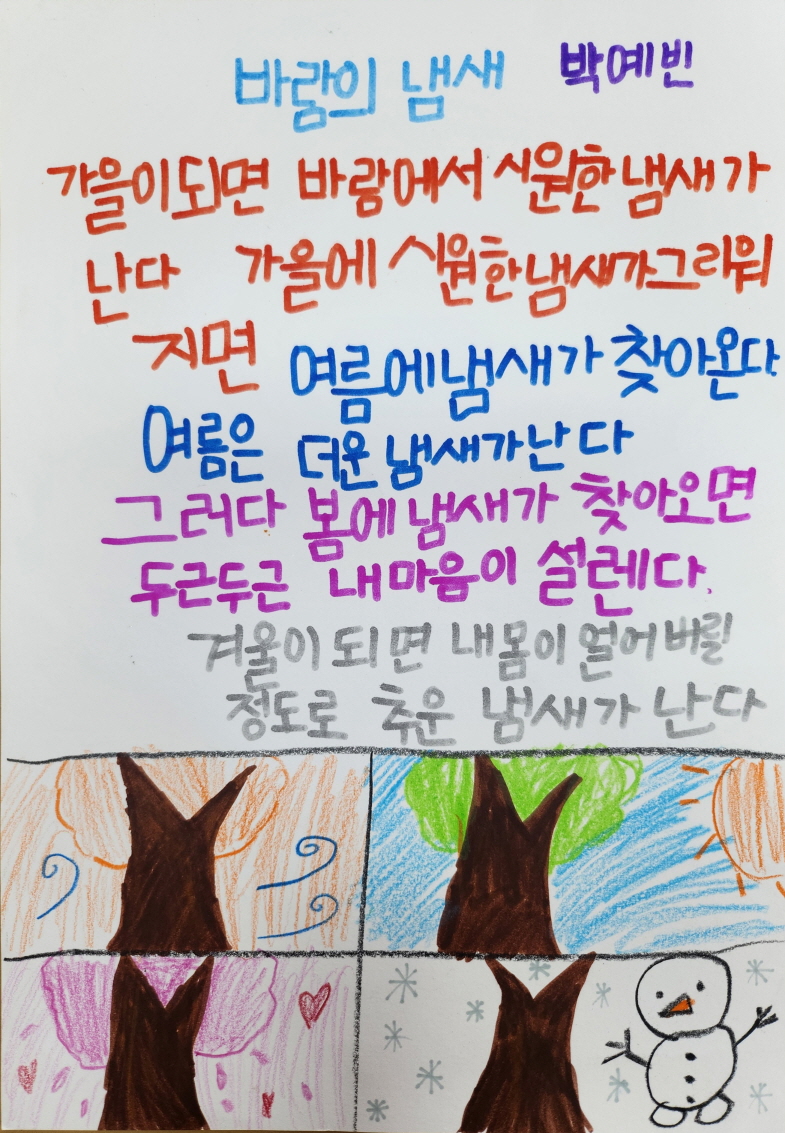 바람의 냄새 박예빈
가을이되면 바람에서 시원한냄새가
난다 가을에 시원한냄새가그리워
지면 여름에냄새가 찾아온다
여름은 더운 냄새가난다
그러다 봄에냄새가 찾아오면
두근두근 내마음이 설렌다.
겨울이되면 내몸이 얼어버릴
정도로 추운 냄새가 난다